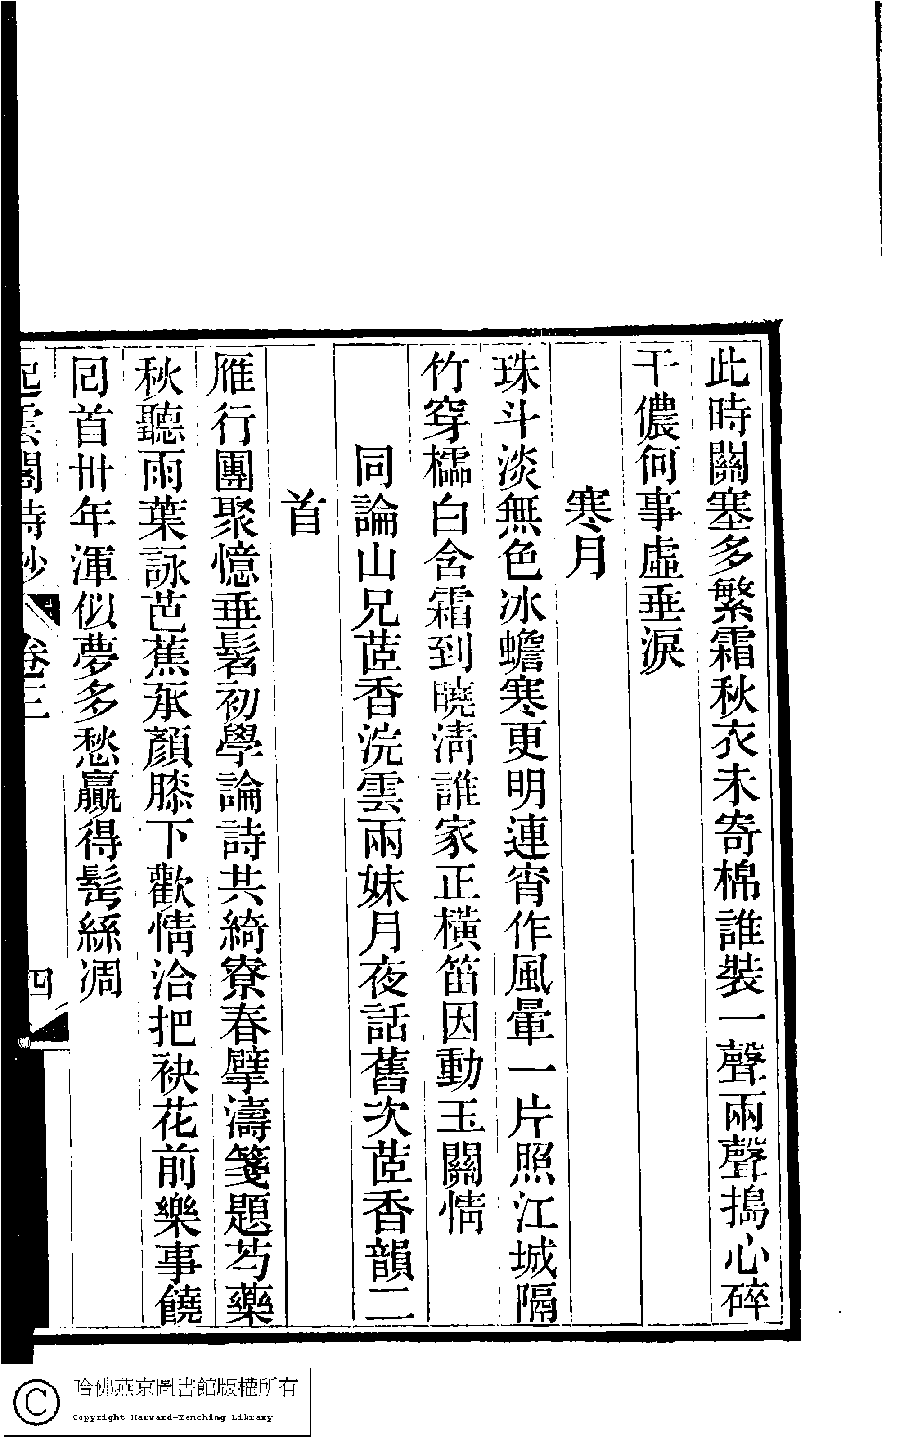 此時關塞多繁霜秋衣未寄棉誰裝一聲兩聲搗心碎
干儂何事虛垂淚
寒月
珠斗淡無色冰蟾寒更明連宵作風暈一片照江城隔
竹穿櫺白含霜到曉清誰家正橫笛因動玉關情
同論山兄茝香浣雲兩妹月夜話舊次茝香韻二
首
雁行團聚憶垂髫初學論詩共綺寮春擘濤箋題芍藥
秋聽雨葉詠芭蕉承顏膝下歡情洽把袂花前樂事饒
回首卅年渾似夢多愁贏得髩絲凋
起雲閣詩鈔 卷三 四
哈佛燕京圖書館版權所有
Copyright Harvard-Yenching Library